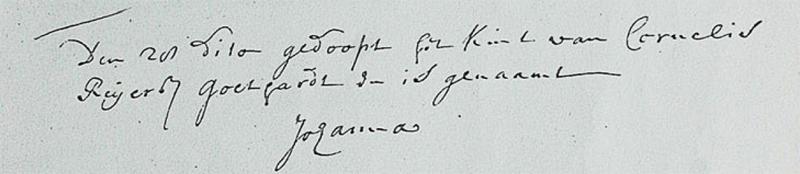 Den 28 dito gedoopt het kint van Cornelis
Reijers Goethardt en is genaamt
Johanna